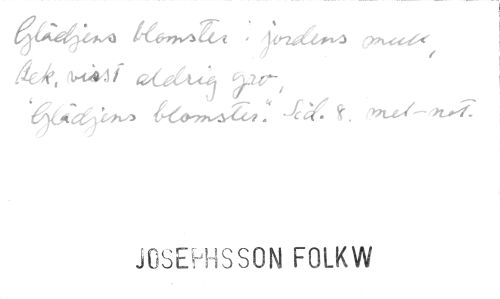 Glädjens blomster i jordens mull,
Ack, visst aldrig gro,
"Glädjens blomster." Sid. 8. mel-not.
JOSEPHSSON FOLKW